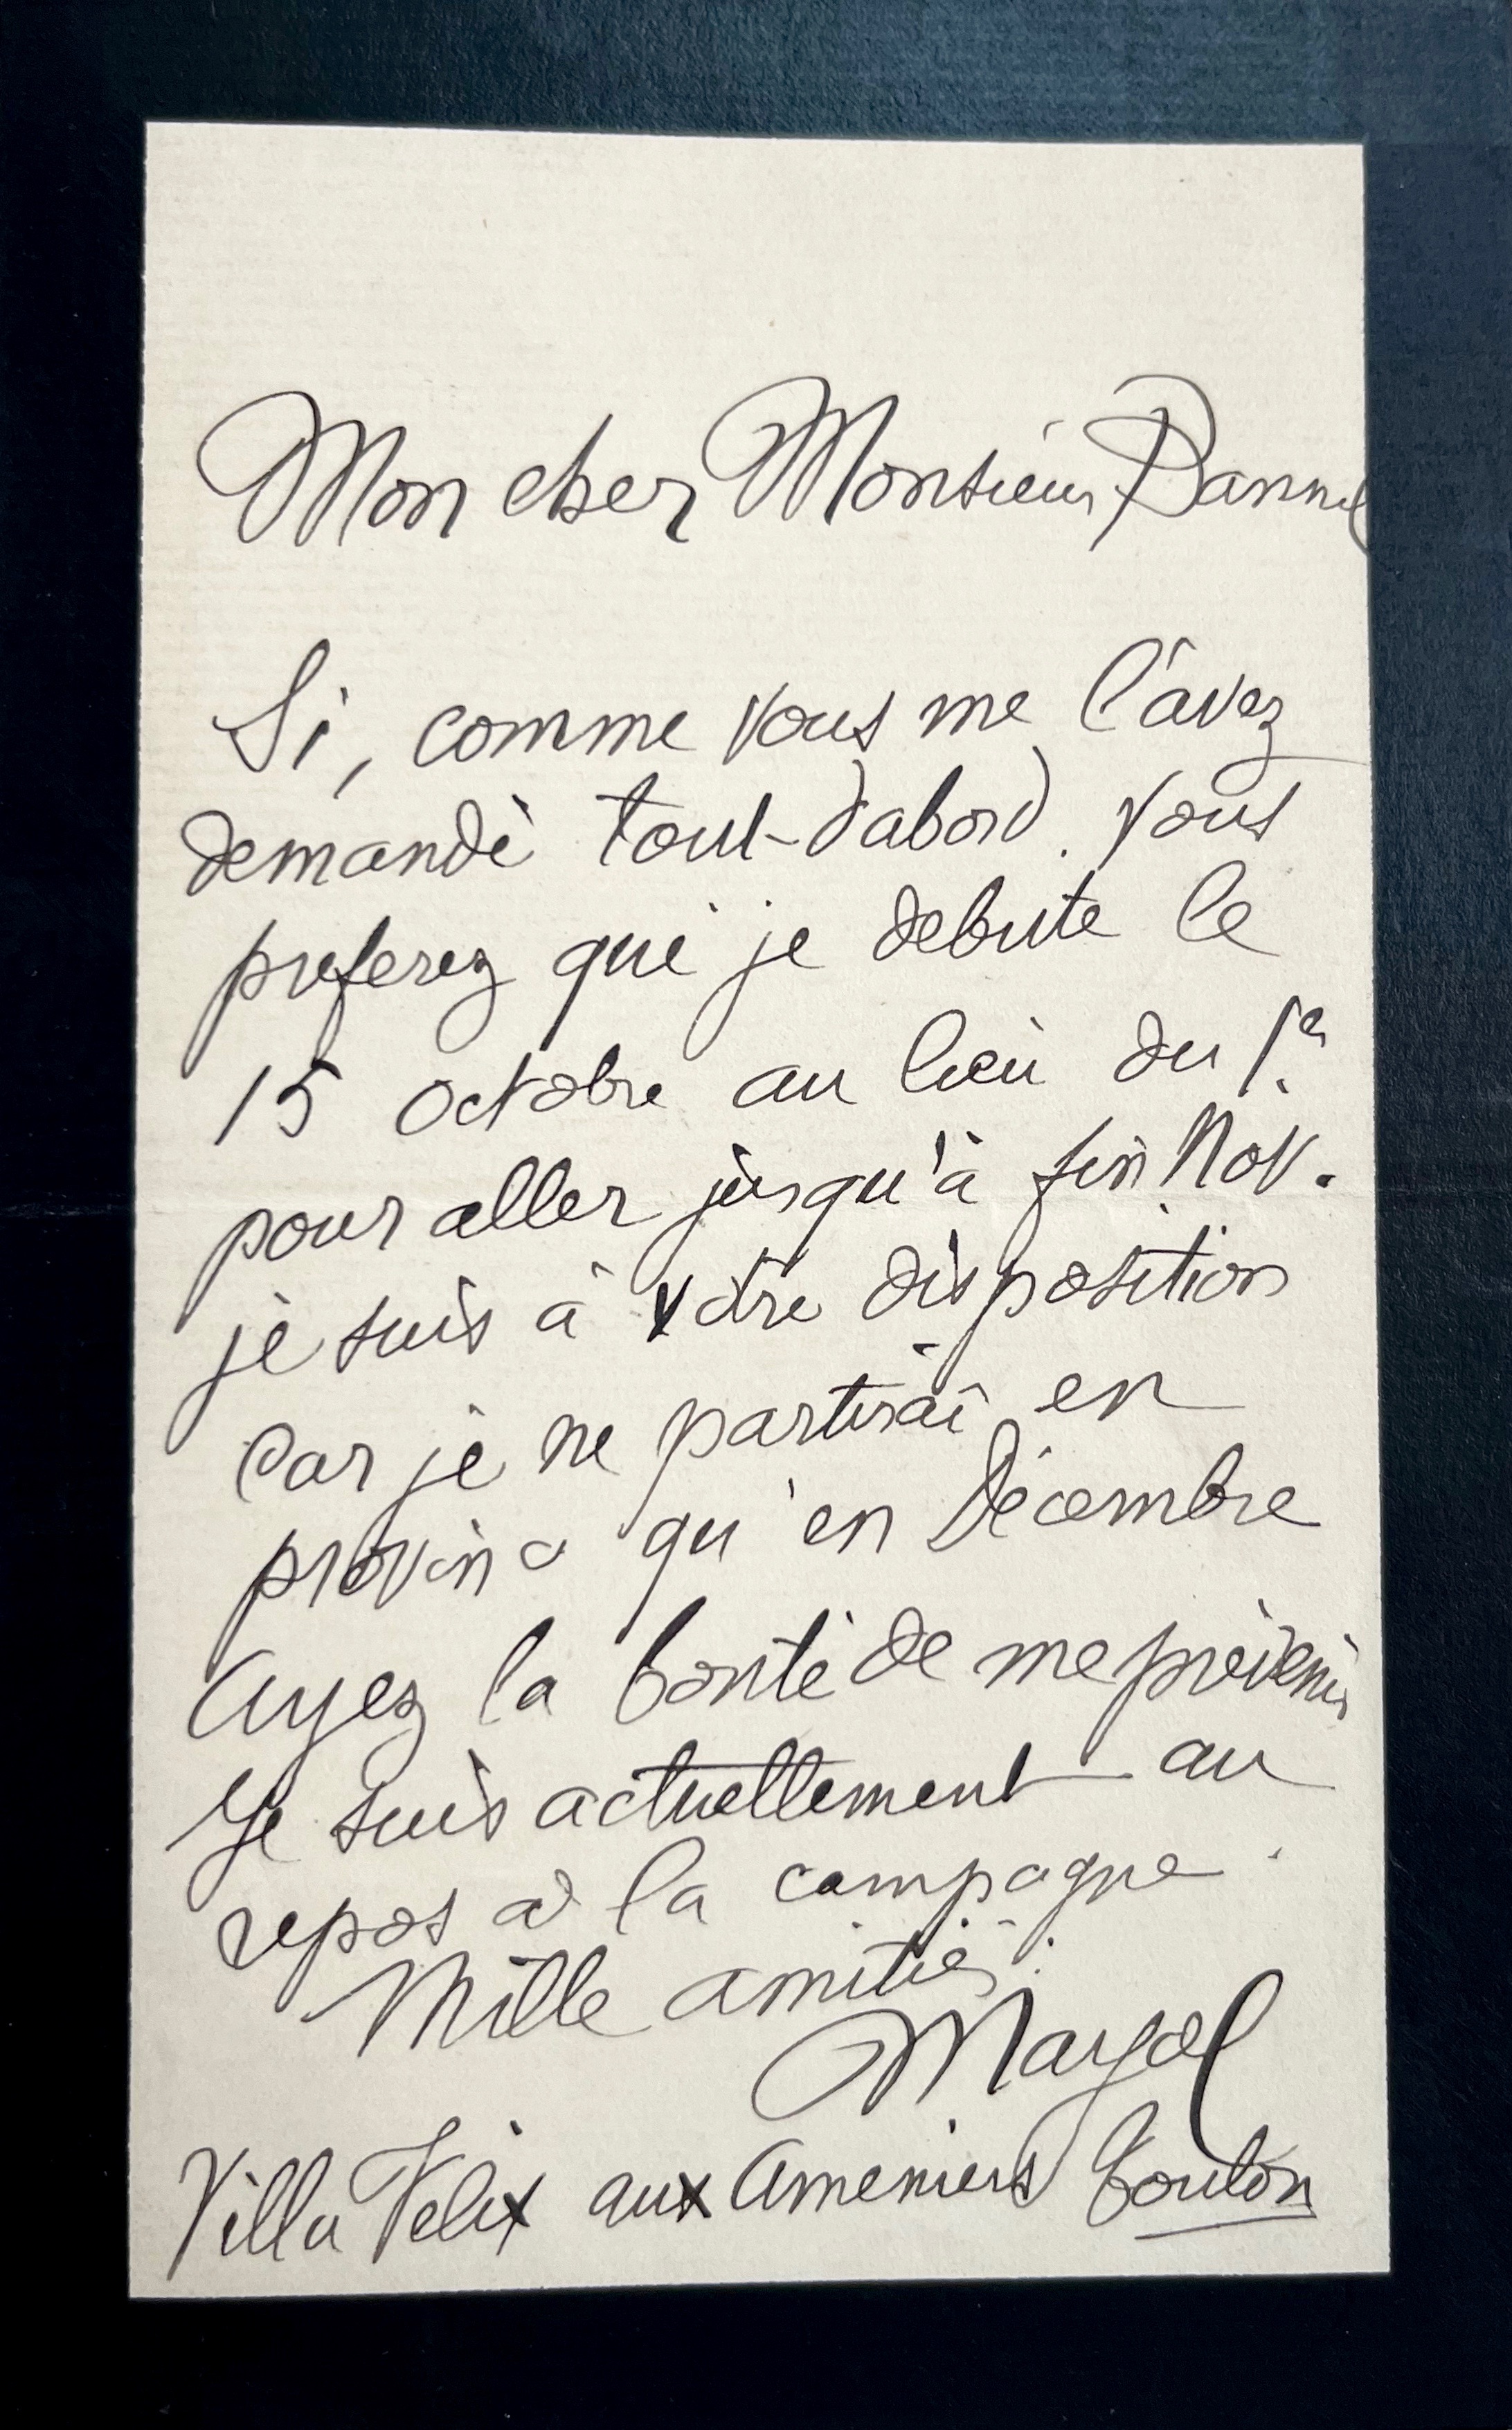 Mon cher Monsieur Bannel
Si, comme vous me l'avez
demandé tout-d'abord. vous
preferez que je debute le
15 octobre au lieu du 1er
pour aller jusqu'à fin Nov.
je suis à votre disposition
car je ne partirai en
province qu'en Décembre
Ayez la bonté de me prévenir
Je suis actuellement au
repos à la campagne.
Mille amitiés.
Mayol
Villa Felix aux Ameniers Toulon